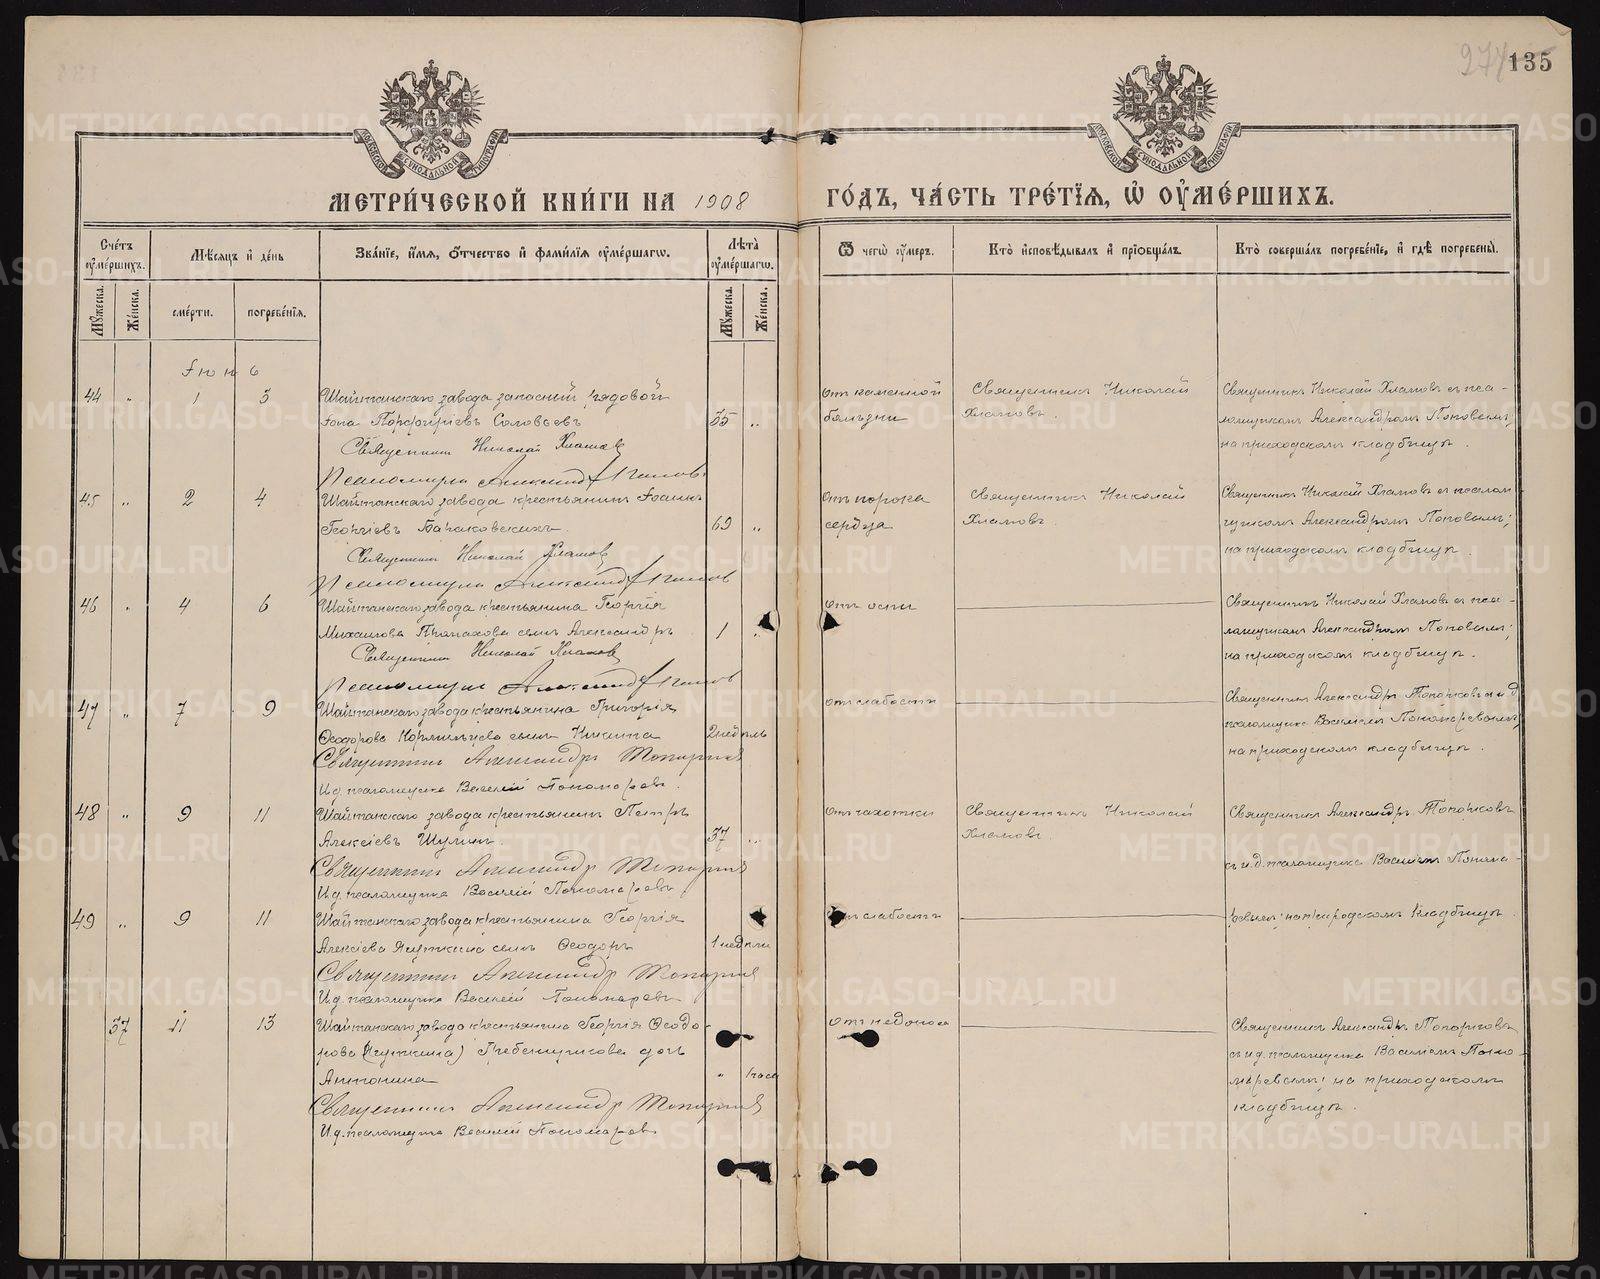 274 135
МОСКОВСКОЙ СѴНОДАЛЬНОЙ ТИПОГРАФІИ
МОСКОВСКОЙ СѴНОДАЛЬНОЙ ТИПОГРАФІИ
МЕТРИ́ЧЕСКОЙ КНИ́ГИ НА 1908 ГО́ДЪ, ЧА́СТЬ ТРЕ́ТЇѦ, Ѽ ОУ҆МЕ́РШИХЪ.
Сче́тъ оу҆ме́ршихъ.
Мѣ́сѧцъ и҆ де́нь
Зва́нїе, и҆́мѧ, ѻ҆́тчество и҆ фами́лїѧ оу҆ме́ршагѡ.
Лѣ́та оу҆ме́ршагѡ.
Ѿ чегѡ̀ оу҆́меръ.
Кто̀ и҆сповѣ́дывалъ и҆ прїѡбща́лъ.
Кто̀ соверша́лъ погребе́нїе, и҆ гдѣ̀ погребены̀.
Мꙋ́жеска. Же́нска. сме́рти. погребе́нїѧ. Мꙋ́жеска. Же́нска.
Іюнь
44 " 1 3 Шайтанскаго завода запасный рядовой
Іона Порфиріевъ Соловьевъ 55 "
Священникъ Николай Хламов
Псаломщикъ Александр
отъ каменной
болѣзни
Священникъ Николай
Хламовъ.
Священникъ Николай Хламовъ съ пса-
ломщикомъ Александромъ Поповымъ;
на приходскомъ кладбищѣ.
45 " 2 4 Шайтанскаго завода крестьянинъ Іоаннъ
Георгіевъ 69 "
Священникъ Николай Хламов
Псаломщикъ Александр
Отъ порока
сердца
Священникъ Николай
Хламовъ.
Священникъ Николай Хламовъ съ псалом-
щикомъ Александромъ Поповымъ;
на приходскомъ кладбищѣ.
46 " 4 6 Шайтанскаго завода крестьянина Георгія
Михаилова сынъ Александръ 1 "
Священникъ Николай Хламов
Псаломщикъ Александр
отъ оспы
Священникъ Николай Хламовъ съ пса-
ломщикомъ Александромъ Поповымъ;
на приходскомъ кладбищѣ.
47 " 7 9 Шайтанскаго завода крестьянина Григорія
Ѳеодорова сынъ Никита 2 недѣль
Священникъ Александръ Топорков
И.д. псаломщика Василій Пономаревъ.
отъ слабости
Священникъ Александръ Топорковъ и.д.
псаломщика Василіемъ Пономаревымъ;
на приходскомъ кладбищѣ.
48 " 9 11 Шайтанскаго завода крестьянинъ Петръ
Алексіевъ Шулинъ. 37 "
Священникъ Александр Топорков
И.д. псаломщика Василій Пономаревъ
отъ чахотки
Священникъ Николай
Хламовъ.
Священникъ Александръ Топорковъ
съ и.д. псаломщика Василіемъ Понома-
49 " 9 11 Шайтанскаго завода крестьянина Георгія
Алексіева сынъ Ѳеодоръ 1 недѣли
Священникъ Александр Топорков
И.д. псаломщика Василій Пономаревъ
отъ слабости
ревымъ; на приходскомъ кладбищѣ.
37 11 13 Шайтанскаго завода крестьянина Георгія Ѳеодо-
рова Гребенщикова дочь
Антонина " 1 часа
Священникъ Александр Топорков
И.д. псаломщика Василій Пономаревъ
отъ недоноса
Священникъ Александръ Топорковъ
съ и.д. псаломщика Василіемъ Поно-
маревымъ; на приходскомъ
кладбищѣ.
METRIKI.GASO-URAL.RU